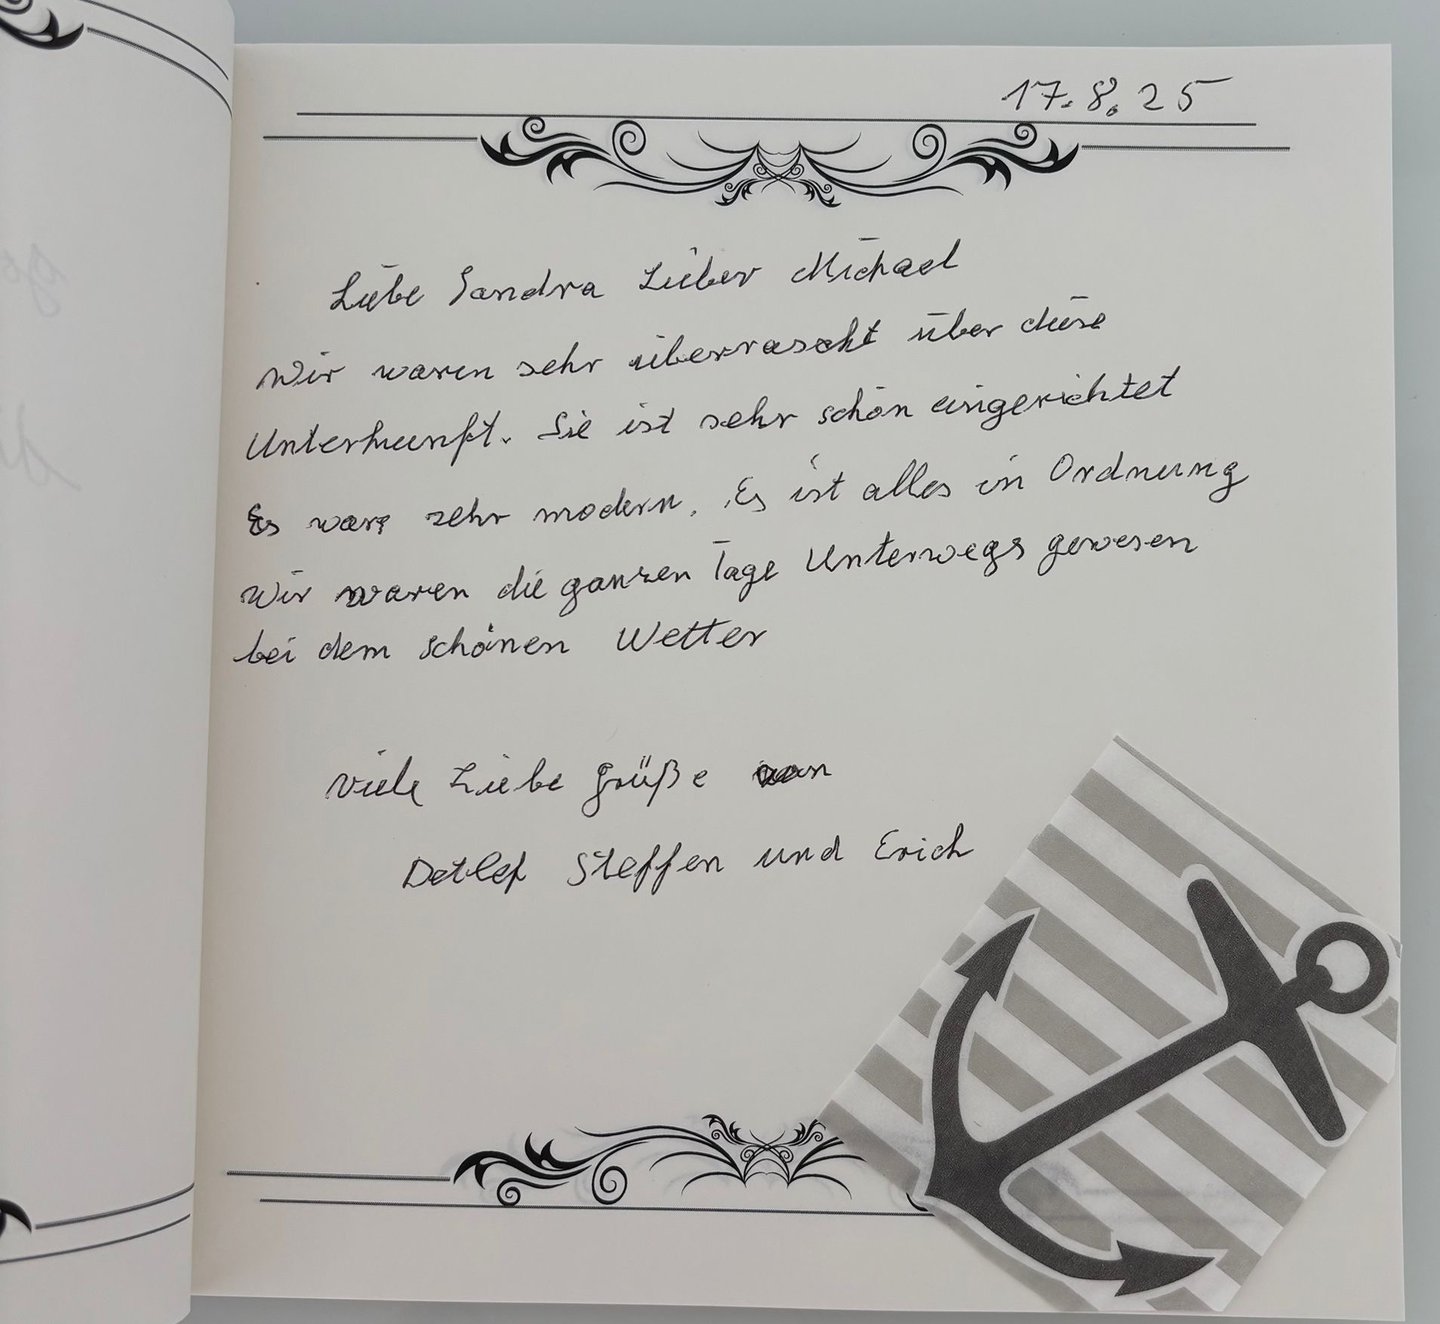 17.8.25
Liebe Sandra Lieber Michael
Wir waren sehr überrascht über diese
Unterkunft. Sie ist sehr schön eingerichtet
Es war sehr modern. Es ist alles in Ordnung
Wir waren die ganzen Tage Unterwegs gewesen
bei dem schönen Wetter
Viele Liebe Grüße von
Detlef Steffen und Erich